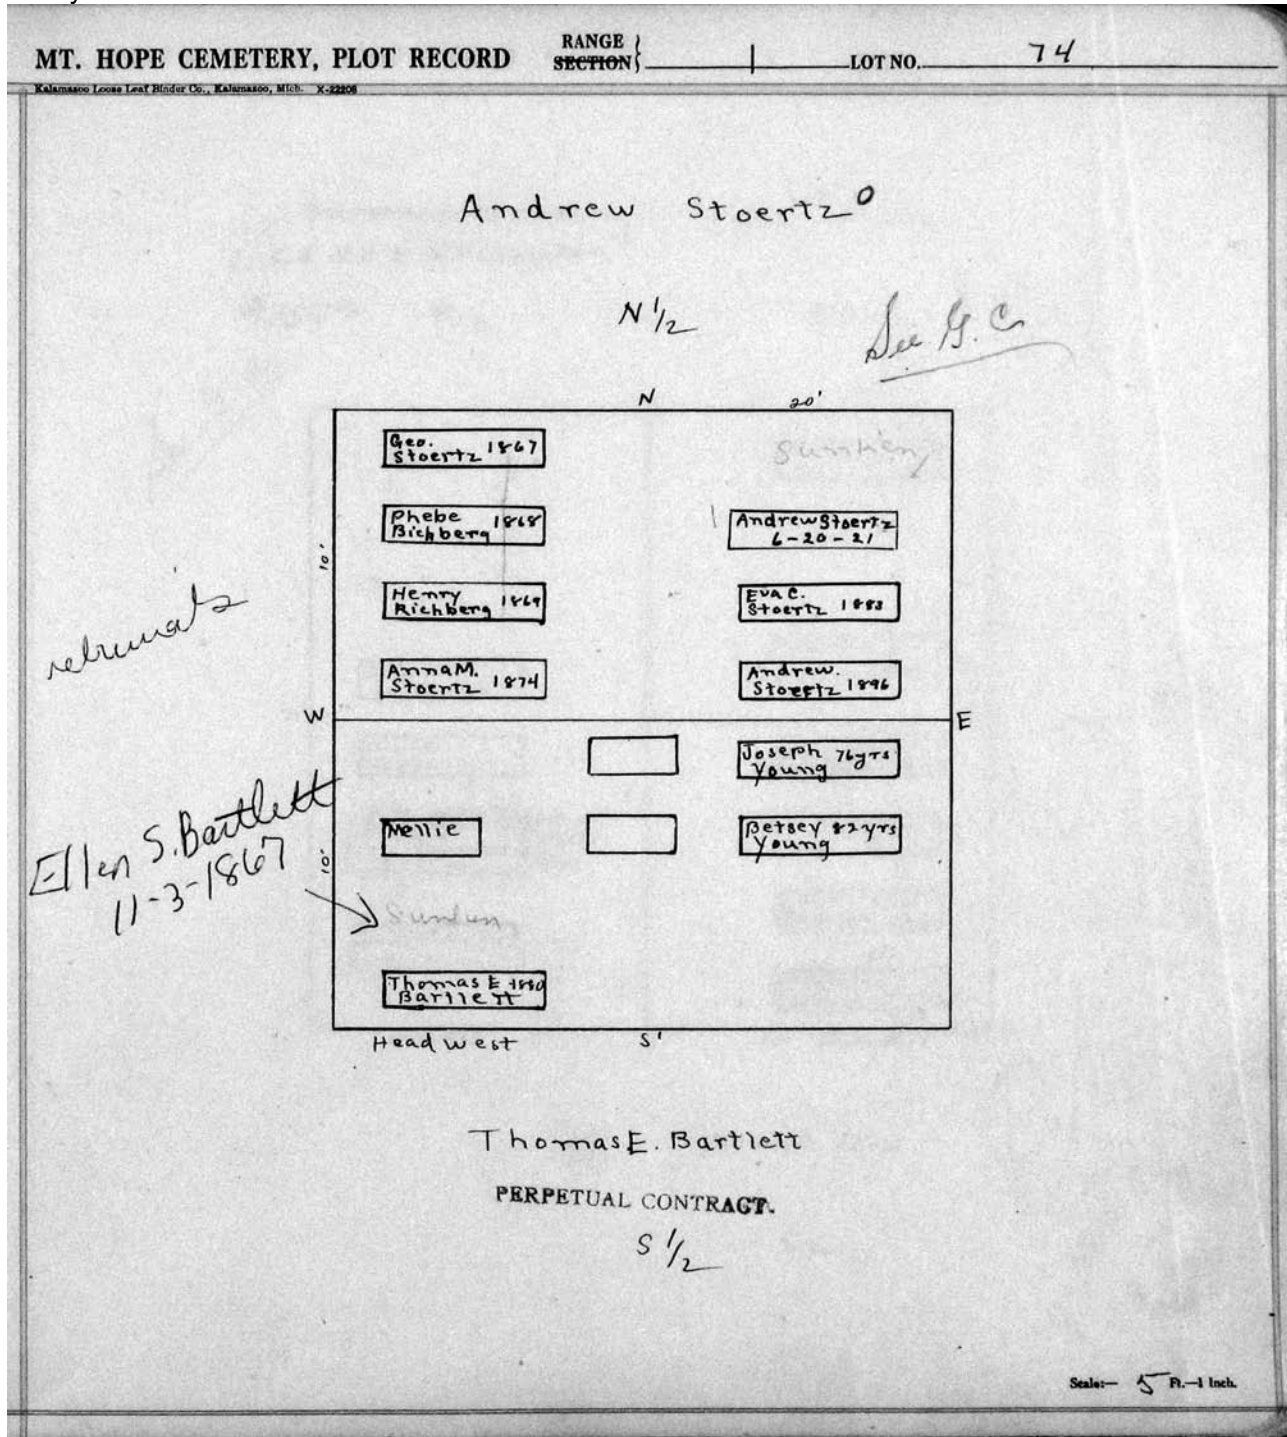 MT. HOPE CEMETERY, PLOT RECORD RANGE SECTION 1 LOT NO. 74
Kalamazoo Loose Leaf Binder Co., Kalamazoo, Mich. X-22208
Andrew Stoertz
N 1/2
See G. C
N 20'
Geo. Stoertz 1867
Phebe Bichberg 1868
Andrew Stoertz
6-20-21
10'
Henry Richberg 1869
Eva C. Stoertz 1883
Anna M. Stoertz 1874
Andrew. Stoertz 1896
W E
Joseph Young 76yrs
Ellen S. Bartlett
11-3-1867
Nellie
Betsey Young 82yrs
10'
Thomas E Bartlett 1880
Head west S'
Thomas E. Bartlett
PERPETUAL CONTRACT.
S 1/2
Scale:— 5 Ft.—1 Inch.